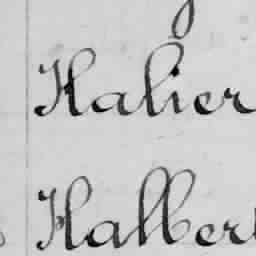 Halier
Halber